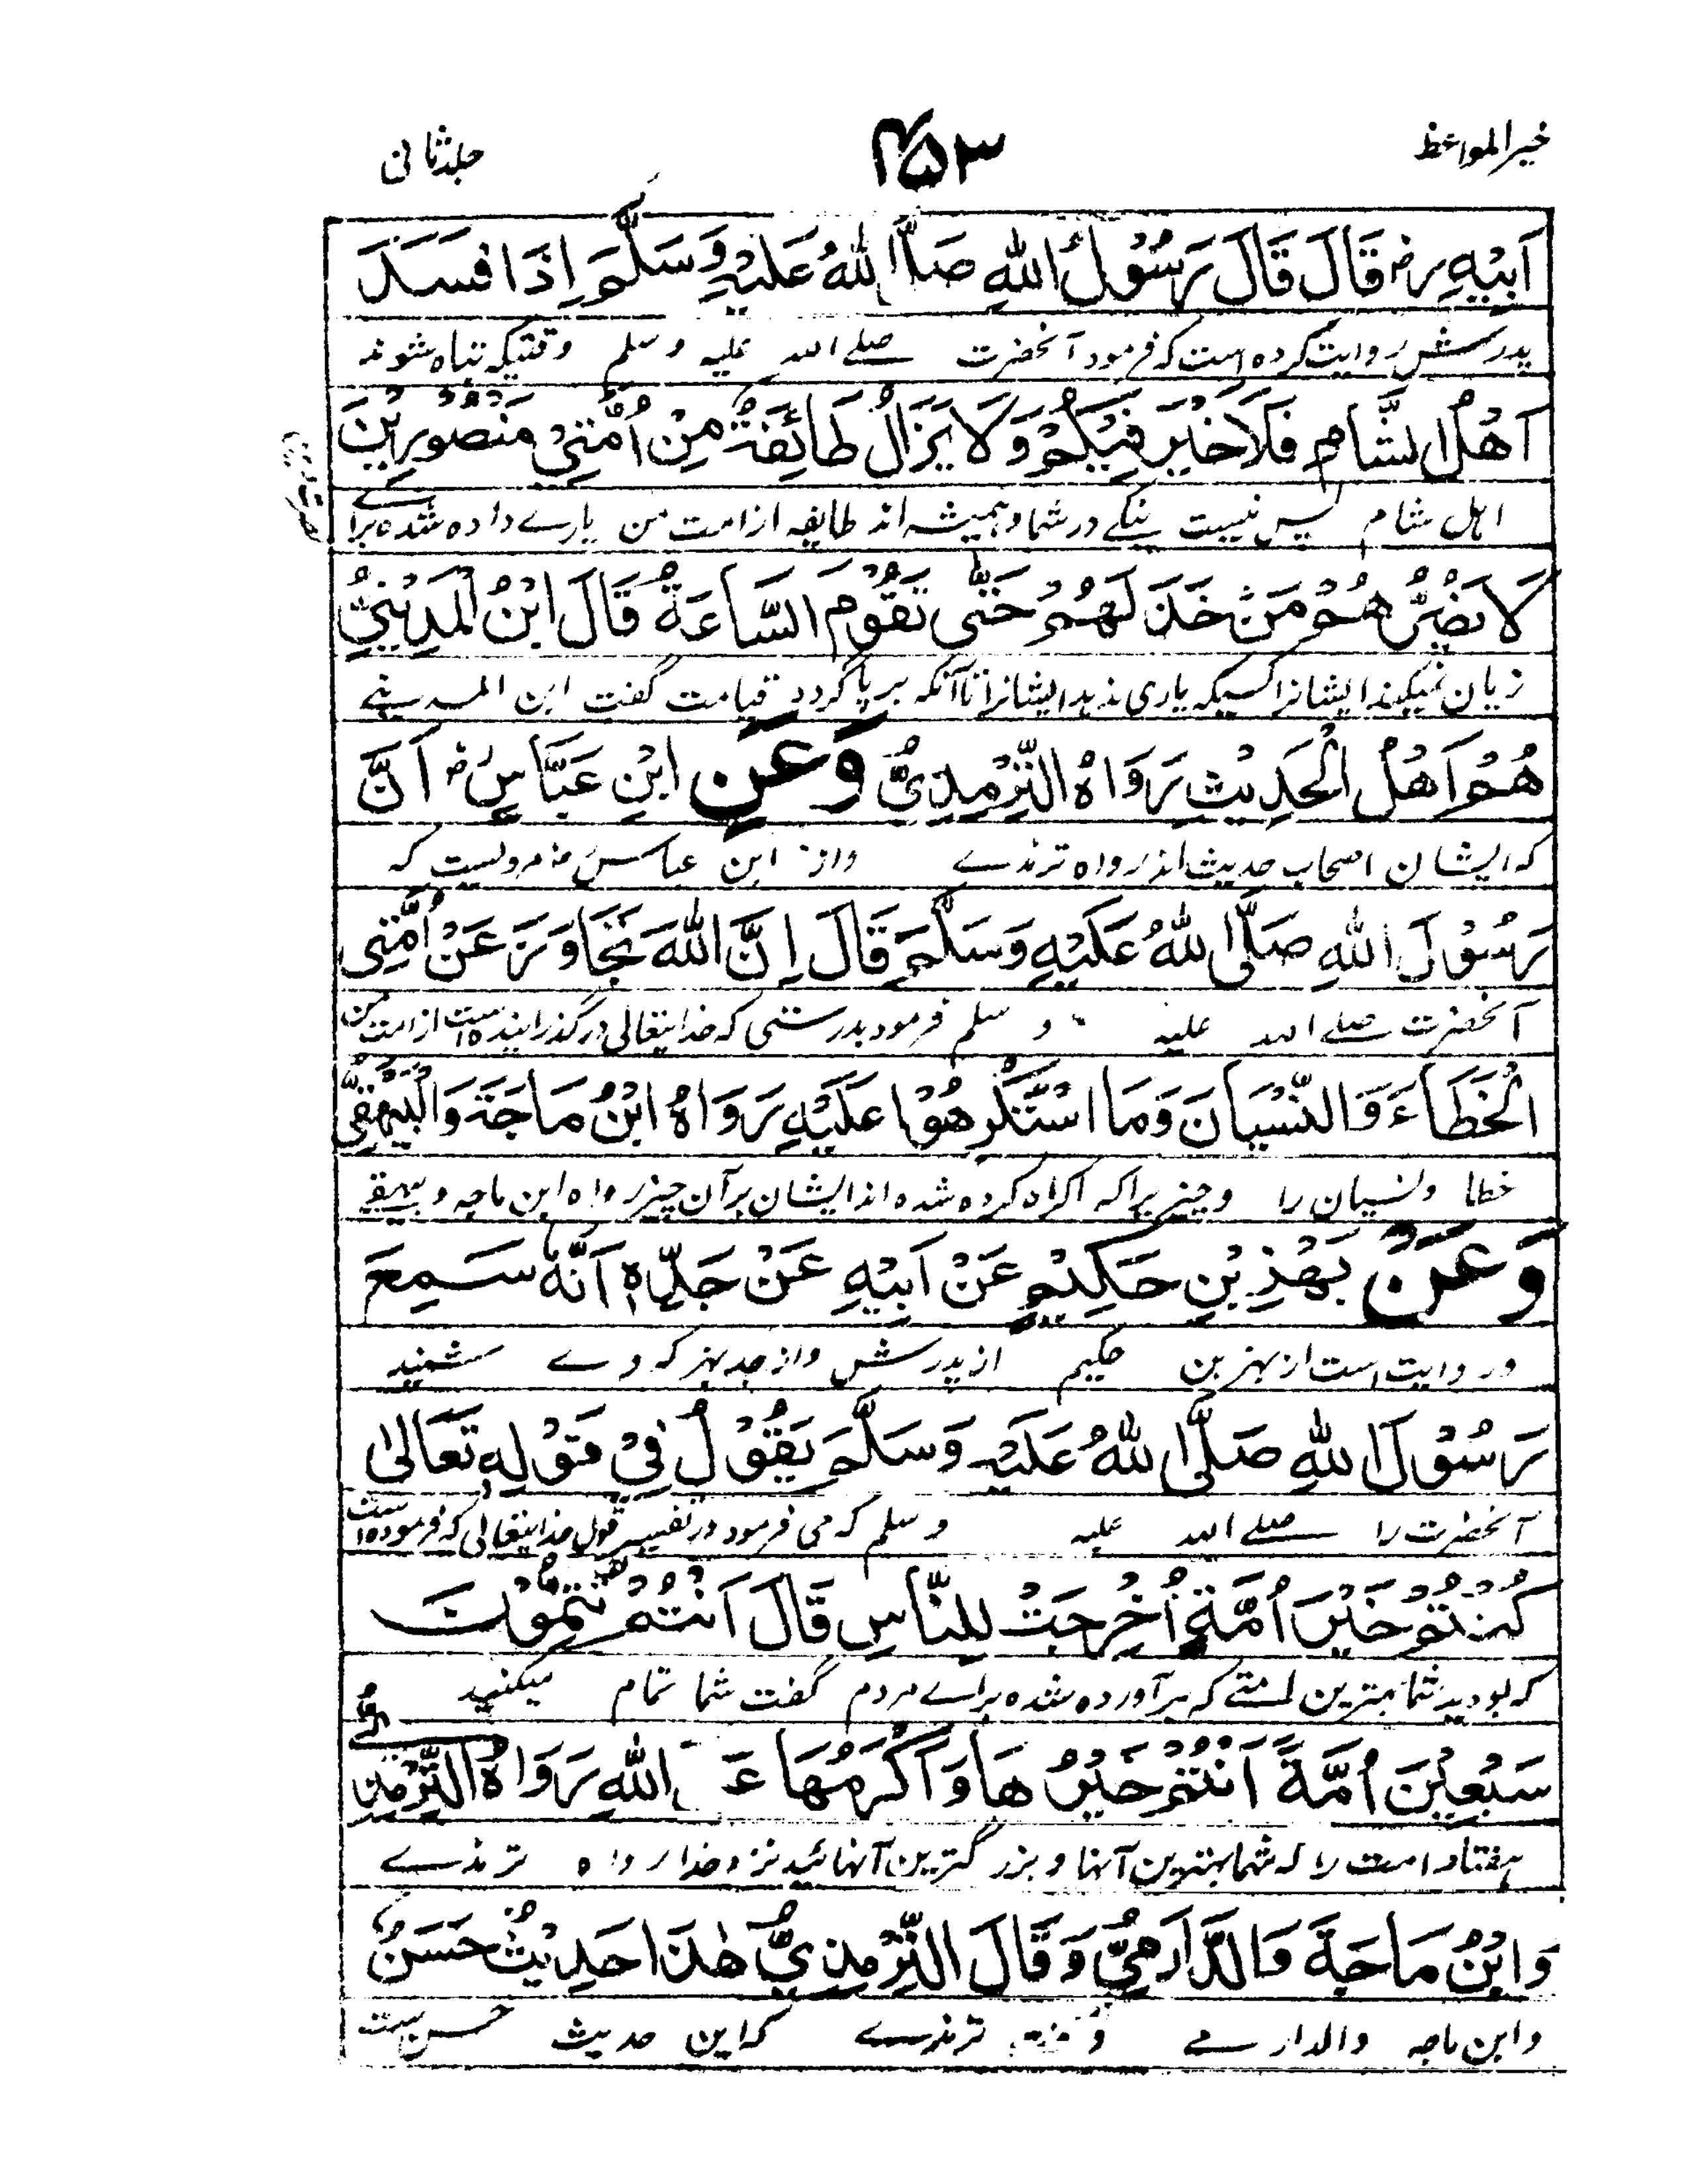 خیر المواعظ
۴۵۳
جلد ثانی
اَبِیْهِ رض قَالَ قَالَ رَسُوْلُ اللهِ صَلَّی اللهُ عَلَیْهِ وَسَلَّمَ اِذَا فَسَدَ
پدرش روایت کرده است که فرمود آنحضرت صلے الله علیه وسلم وقتیکه تباه شوند
اَهْلُ الشَّامِ فَلَا خَیْرَ فِیْکُمْ وَلَا یَزَالُ طَائِفَةٌ مِنْ اُمَّتِیْ مَنْصُوْرِیْنَ
اهل شام پس نیست نیکے در شما و همیشه اند طایفه از امت من یارے داده شده برا
لَا یَضُرُّهُمْ مَنْ خَذَلَهُمْ حَتّٰی تَقُوْمَ السَّاعَةُ قَالَ ابْنُ الْمَدِیْنِیِّ
زیان نمیکند ایشانرا کسیکه یاری ندهد ایشانرا تا آنکه بر پا گردد قیامت گفت ابن المدینے
هُمْ اَهْلُ الْحَدِیْثِ رَوَاهُ التِّرْمِذِیُّ وَعَنِ ابْنِ عَبَّاسٍ رض اَنَّ
که ایشان اصحاب حدیث اند رواه ترمذے واز ابن عباس رض مرویست که
رَسُوْلَ اللهِ صَلَّی اللهُ عَلَیْهِ وَسَلَّمَ قَالَ اِنَّ اللهَ تَجَاوَزَ عَنْ اُمَّتِی
آنحضرت صلے الله علیه و سلم فرمود بدرستی که خدایتعالی در گذرانیده است از امت من
الْخَطَاءَ وَالنِّسْیَانَ وَمَا اسْتُکْرِهُوْا عَلَیْهِ رَوَاهُ ابْنُ مَاجَةَ وَالْبَیْهَقِیُّ
خطا ونسیان را وچیزیرا که اکراه کرده شده اند ایشان بر آن چیز رواه ابن ماجه و بیهقے
وَعَنْ بَهْزِ بْنِ حَکِیْمٍ عَنْ اَبِیْهِ عَنْ جَدِّهٖ اَنَّهٗ سَمِعَ
و روایت است از بهز بن حکیم از پدرش واز جد بهز که وے شنید
رَسُوْلَ اللهِ صَلَّی اللهُ عَلَیْهِ وَسَلَّمَ یَقُوْلُ فِیْ قَوْلِهٖ تَعَالٰی
آنحضرت را صلے الله علیه وسلم که می فرمود در تفسیر قول خدایتعالی که فرموده است
کُنْتُمْ خَیْرَ اُمَّةٍ اُخْرِجَتْ لِلنَّاسِ قَالَ اَنْتُمْ تُتِمُّوْنَ
که بودید شما بهترین امتے که بر آورده شده براے مردم گفت شما تمام میکنید
سَبْعِیْنَ اُمَّةً اَنْتُمْ خَیْرُهَا وَاَکْرَمُهَا عَ اللهِ رَوَاهُ التِّرْمِذِیُّ
هفتاد امت را که شما بهترین آنها و بزرگترین آنهائید نزد خدا رواه ترمذے
وَابْنُ مَاجَةَ وَالدَّارَمِیُّ وَقَالَ التِّرْمِذِیُّ هٰذَا حَدِیْثٌ حَسَنٌ
وابن ماجه والدارمے و ترمذے که این حدیث حسن ست